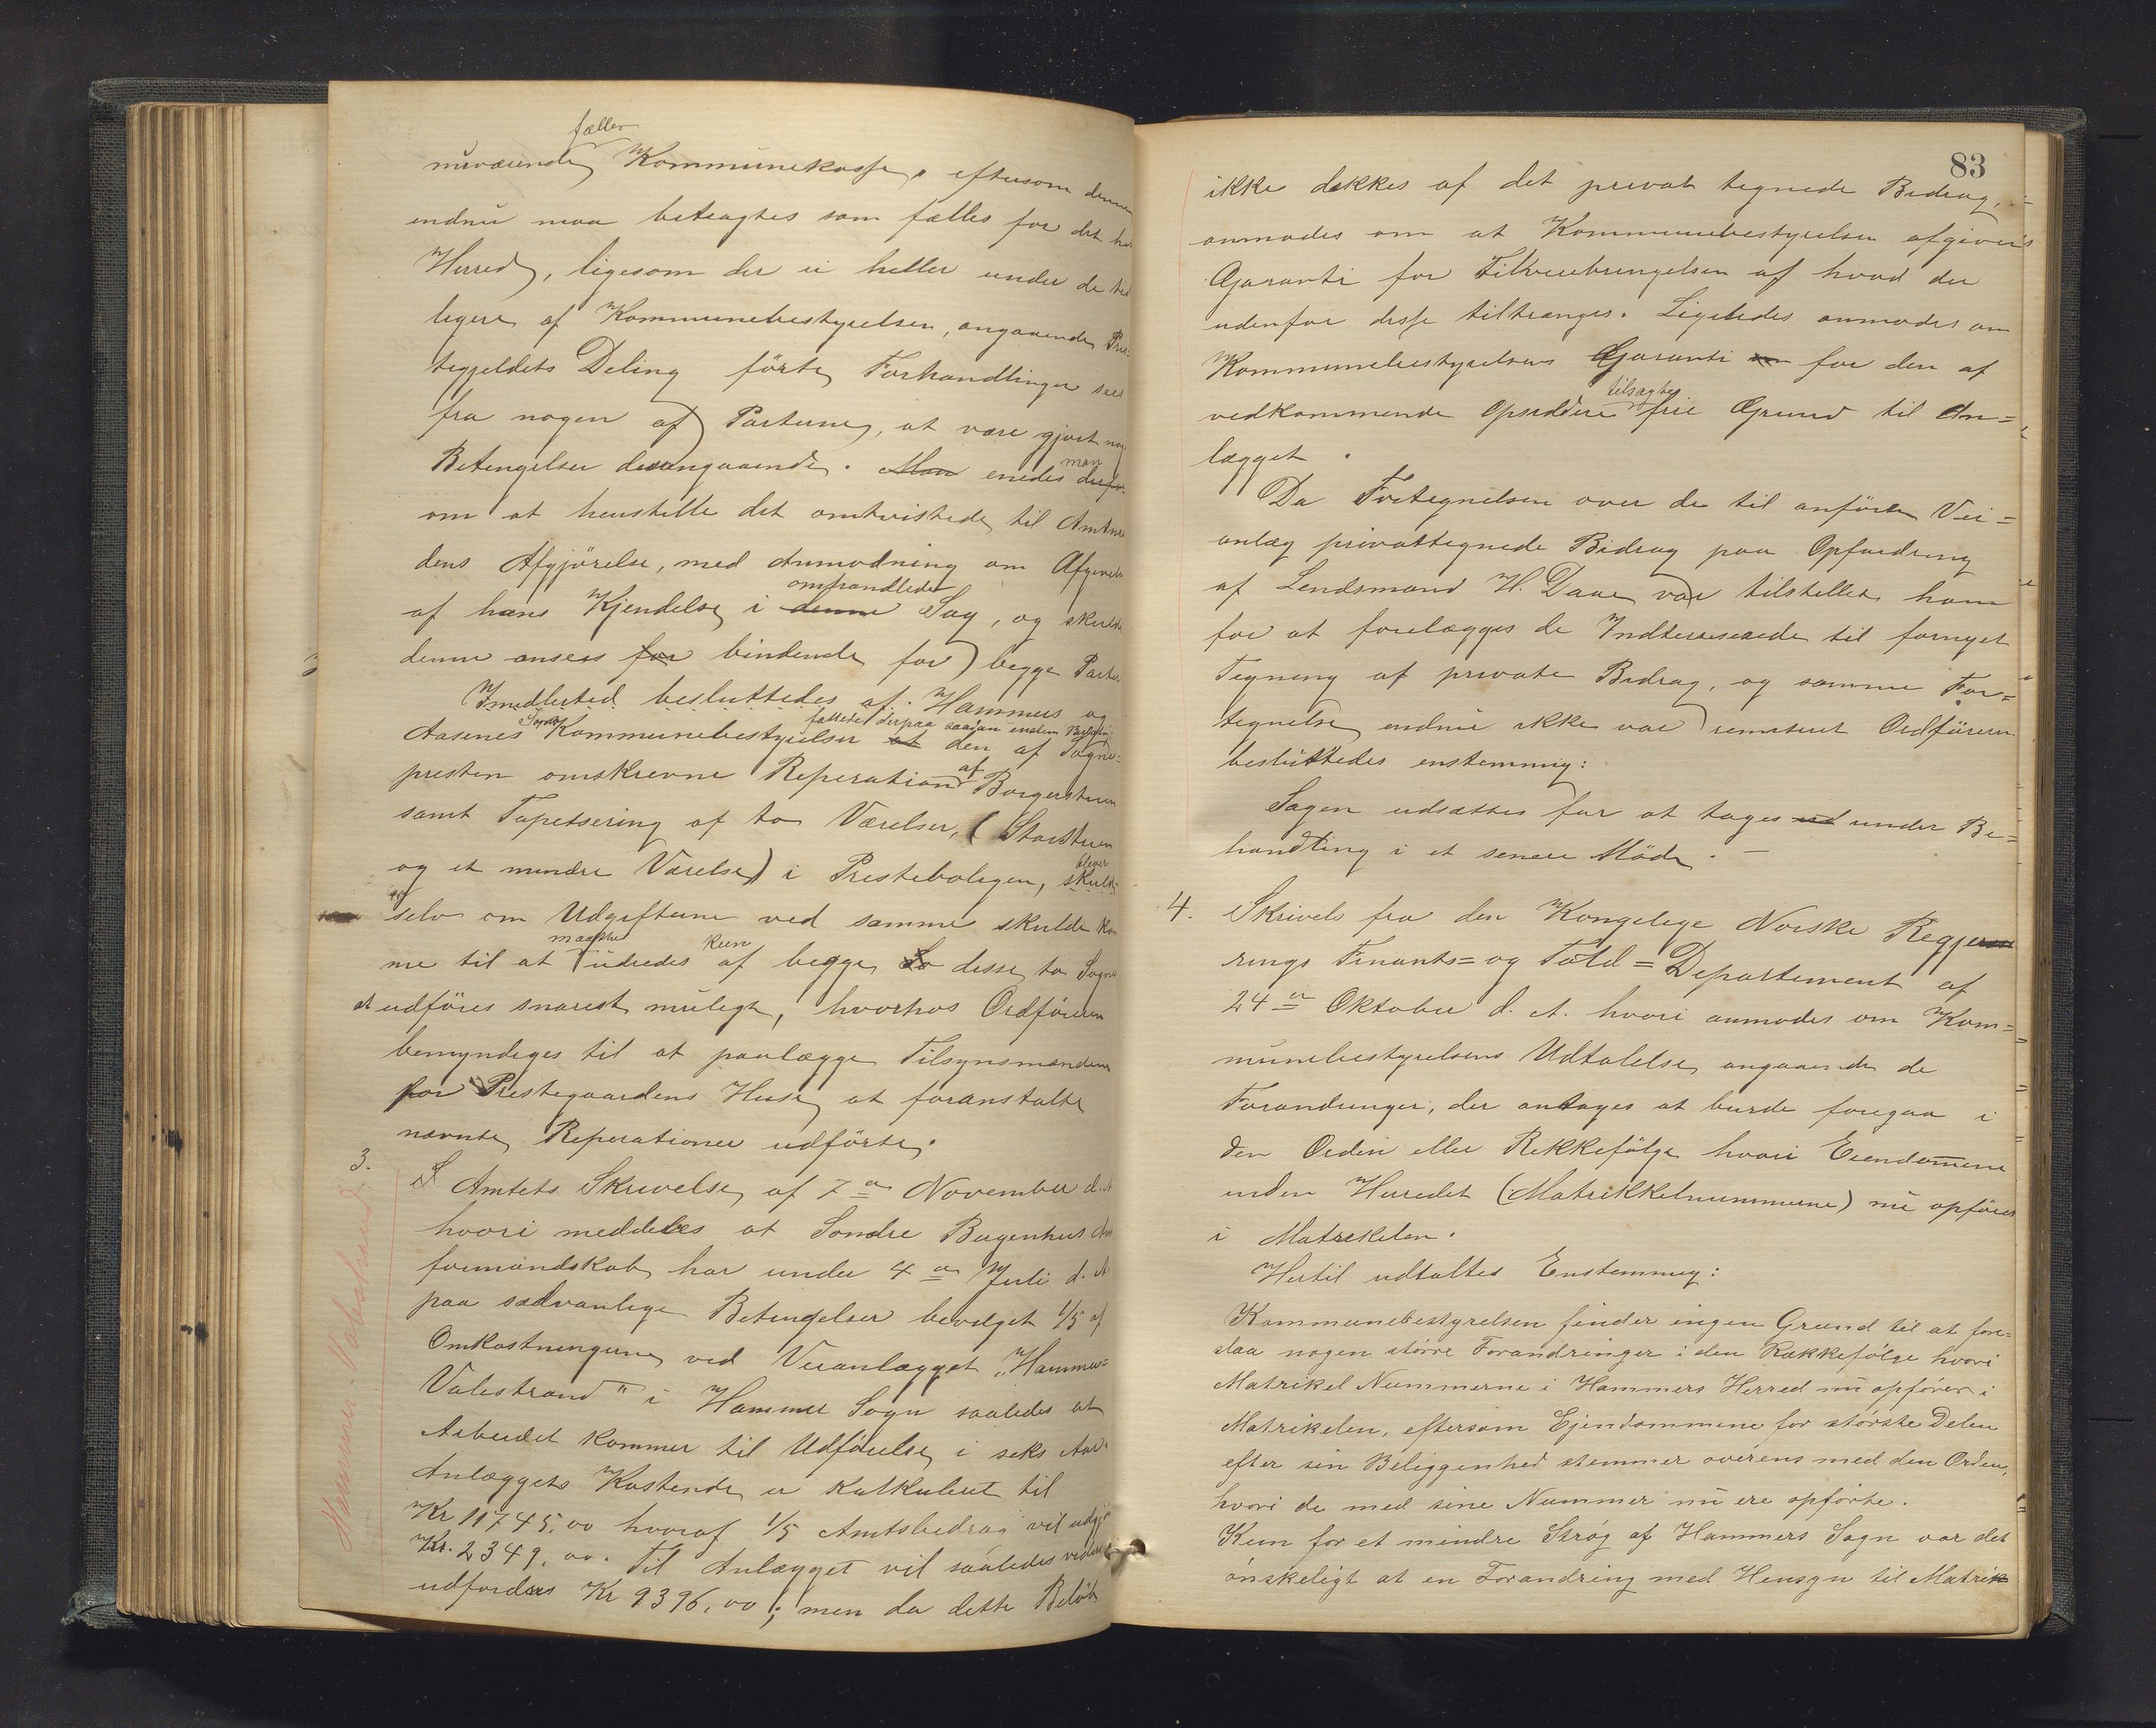 fælles
nuværende Kommunekasse, eftersom denne
endnu maa betragtes som fælles for det
Herred, ligesom der ei heller under de
ligere af Kommunebestyrelsen, angaaende Præ-
stegjeldets Deling førte Forhandlinger sees
fra nogen af Parterne, at være gjort
Betingelser desangaaende. Man enedes man derfor
om at henstille det omtvistede til Amtm
dens Afgjörelse, med Anmodning om Afgivelse
omhandlede
af hans Kjendelse i denne Sag, og skulde
denne ansees for bindende for begge Parter
Imidlertid besluttedes af Hammers og
Sogns fattede derpaa saadan enstem Beslutning:
Aasenes Kommunebestyrelser at den af Sogne-
presten omskrevne Reperation af Borgerstuen
samt Tapetsering af to Værelser, (Storstuen
og et mindre Værelse) i Prestebolegen, bliver skulde
og
selv om Udgifterne ved samme skulde kom
maaske kun
me til at udredes af begge So disse to Sogne
at udføres snarest muligt, hvorhos Ordføreren
bemyndiges til at paalægge Tilsynsmændene
for Prestegaardens Huse at foranstalte
nævnte Reperationer udförte.
3. I Amtets Skrivelse af 7de November d. A
hvori meddeles at Søndre Bergenhus Amts
formandskab har under 4de Juli d. A.
paa sædvanlige Betingelser bevilget 1/5 af
Omkostningerne ved Veianlægget "Hammer=
Valestrand" i Hammer Sogn saaledes at
Arbeidet kommer til Udförelse i seks Aar.
Anlæggets Kostende er kalkuleret til
Kr 11745,00 hvoraf 1/5 Amtsbidrag vil udgjø
Kr. 2349,00. Til Anlægget vil saaledes videre
udfordres Kr 9396,00; men da dette Beløb
Hammer-Valestrand
83
ikke dækkes af det privat tegnede Bidrag,
anmodes om at Kommunebestyrelsen afgiver
Garanti for Tilveiebringelsen af hvad der
udenfor disse tiltrænges. Ligeledes anmodes om
Kommunebestyrelsens Garanti om for den af
tilsagte
vedkommende Opsiddere frie Grund til An=
lægget.
Da Fortegnelsen over de til anförte Vei=
anlæg privattegnede Bidrag paa Opfordring
af Lendsmand H. Daae var tilstillet ham
for at forelægges de Indteresserede til fornyet
Tegning af private Bidrag, og samme For=
tegnelse endnu ikke var remiteret Ordføreren
besluttedes enstemmig:
Sagen udsættes for at tages ud under Be=
handling i et senere Möde. —
4. Skrivels fra den Kongelige Norske Regje
rings Finants= og Told=Departement af
24de Oktober d. A. hvori anmodes om Kom=
munebestyrelsens Udtalelse angaaende de
Forandringer, der antages at burde foregaa i
den Orden eller Rekkefölge hvori Eiendommene
inden Herredet (Matrikkelnummerne) nu opföres
i Matrikelen.
Hertil udtaltes Enstemmig:
Kommunebestyrelsen finder ingen Grund til at fore=
slaa nogen större Forandringer i den Rækkefölge hvori
Matrikel Nummerne i Hammers Herred nu opförer i
Matrikelen, eftersom Ejendommene for störste Delen
efter sin Beliggenhed stemmer overens med den Orden,
hvori de med sine Nummer nu ere opförte.
Kun for et mindre Strøg af Hammers Sogn var det
önskeligt at en Forandring med Hensyn til Matrik